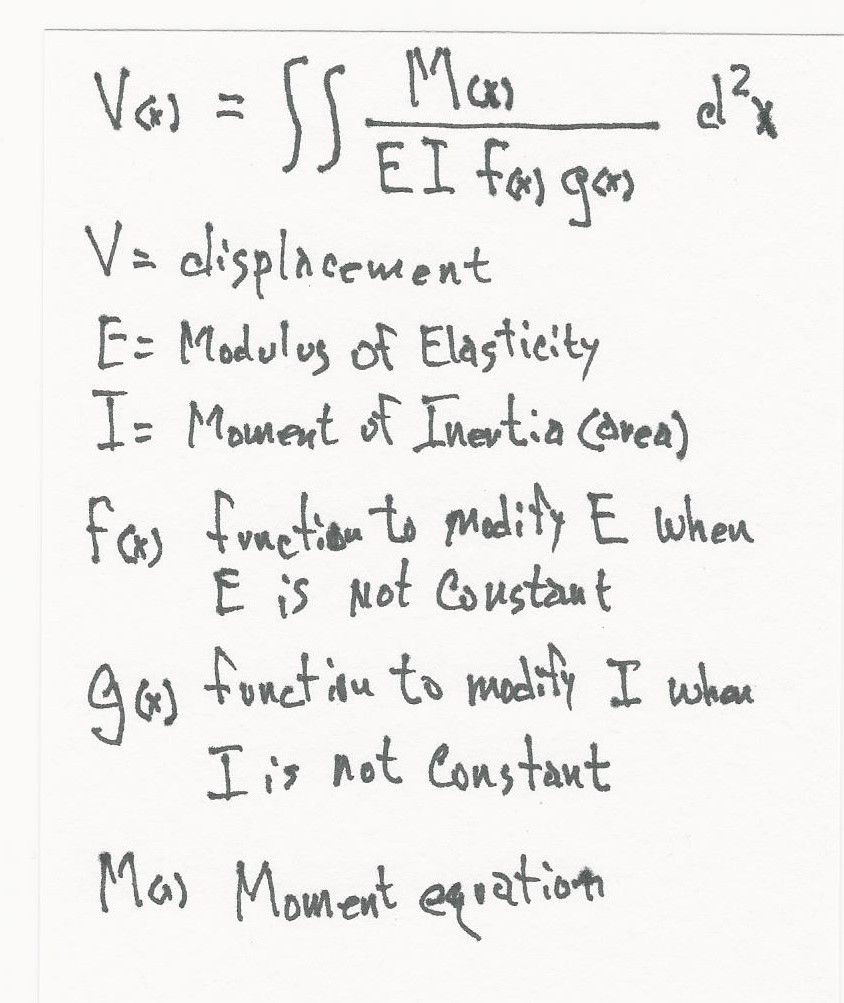 V(x) = ∬ M(x) / E I f(x) g(x) d²x
V= displacement
E= Modulus of Elasticity
I= Moment of Inertia (area)
f(x) function to modify E when
E is not constant
g(x) function to modify I when
I is not constant
M(x) Moment equation